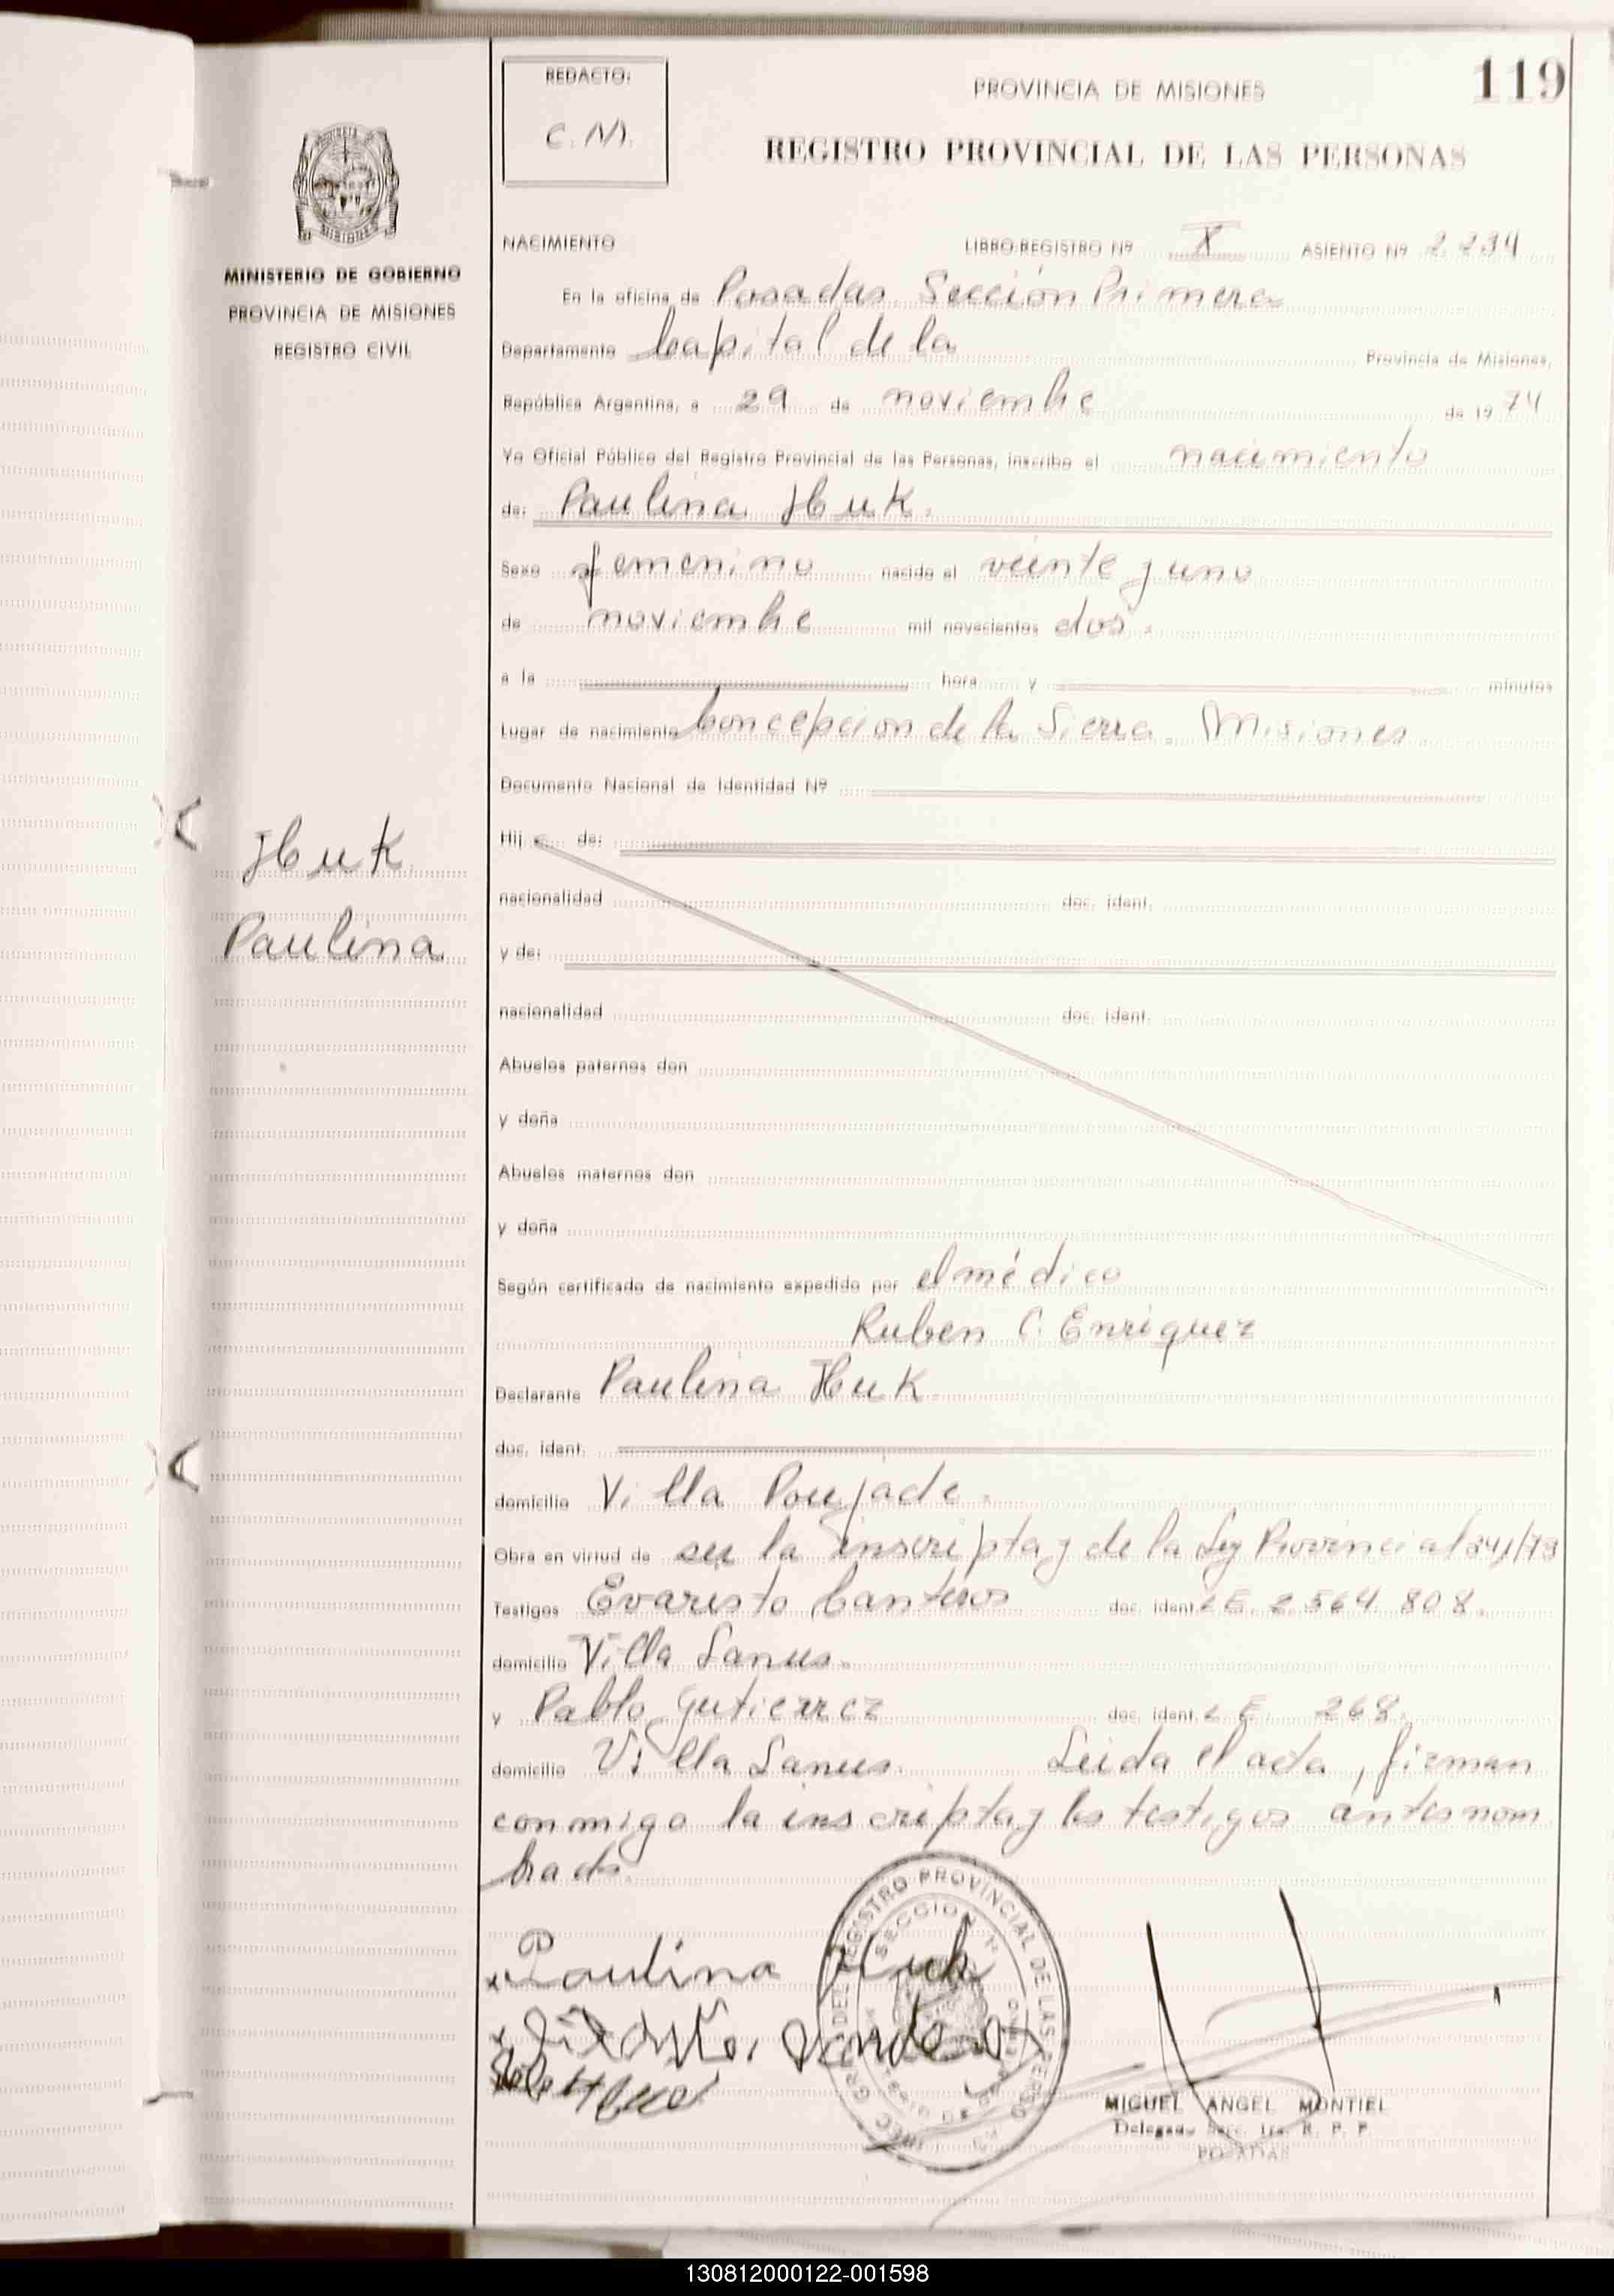 119
REDACTO:
C. M.
PROVINCIA DE MISIONES
REGISTRO PROVINCIAL DE LAS PERSONAS
MINISTERIO DE GOBIERNO
PROVINCIA DE MISIONES
REGISTRO CIVIL
Huk
Paulina
NACIMIENTO LIBRO-REGISTRO Nº X ASIENTO Nº 2234
En la oficina de Posadas Sección Primera
Departamento Capital de la Provincia de Misiones,
República Argentina, a 29 de noviembre de 1974
Yo Oficial Público del Registro Provincial de las Personas, inscribo el nacimiento
de: Paulina Huk.
Sexo femenino nacido el veinte y uno
de noviembre mil novecientos dos.
a la hora y minutos
Lugar de nacimiento Concepcion de la Sierra. Misiones.
Documento Nacional de Identidad Nº
Hij de:
nacionalidad doc. ident.
y de:
nacionalidad doc. ident.
Abuelos paternos don
y doña
Abuelos maternos don
y doña
Según certificado de nacimiento expedido por el médico
Ruben C. Enriquez
Declarante Paulina Huk.
doc. ident.
domicilio Villa Poujade.
Obra en virtud de ser la inscripta y de la Ley Provincial 241/73
Testigos Evaristo Canteros doc. ident. L E. 2.564.808.
domicilio Villa Lanus.
y Pablo Gutierrez doc. ident. L E. 268.
domicilio Villa Lanus. Leida el acta, firman
conmigo la inscripta y los testigos antes nom
brados.
Paulina Huk
REGISTRO PROVINCIAL DE LAS PERSO
SECCION 1ª
MIGUEL ANGEL MONTIEL
Delegado Secc. 1ra. R. P. P.
POSADAS
130812000122-001598